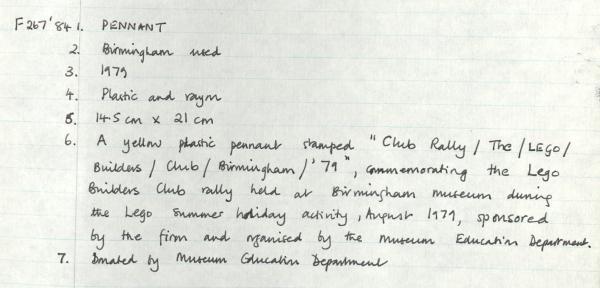 F267'84 1. PENNANT
2. Birmingham used
3. 1979
4. Plastic and rayon
5. 14.5 cm x 21 cm
6. A yellow plastic pennant stamped "Club Rally / The / LEGO /
Builders / Club / Birmingham / '79", commemorating the Lego
Builders Club rally held at Birmingham museum during
the Lego summer holiday activity, August 1979, sponsored
by the firm and organised by the Museum Education Department.
7. Donated by Museum Education Department